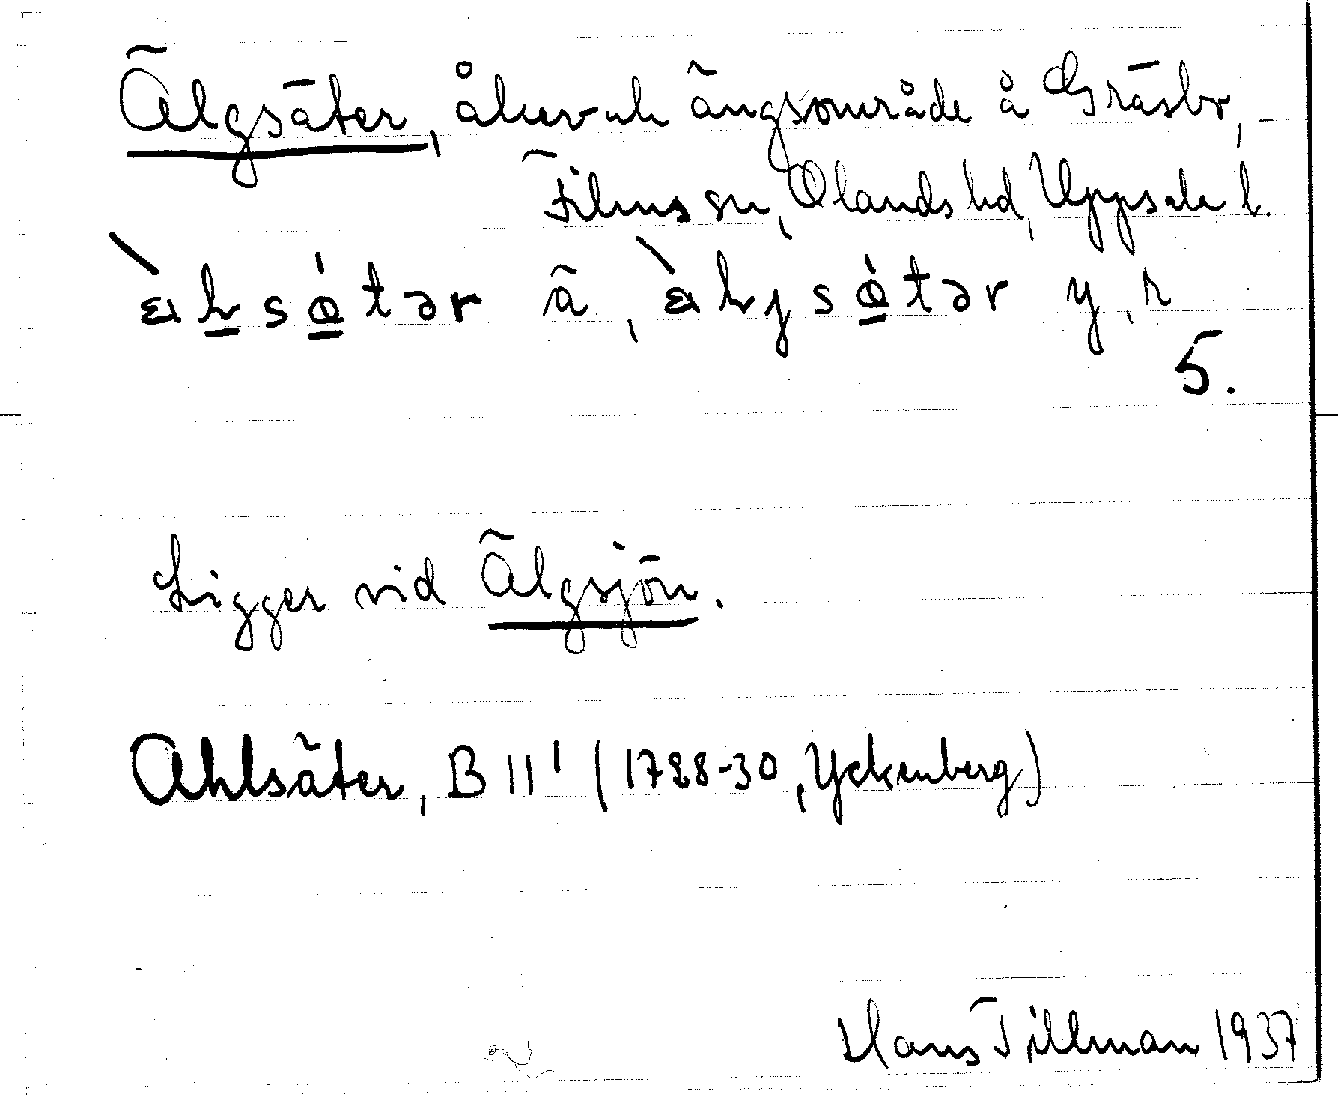 Älgsäter, åker och ängsområde å Gräsbo,
Films sn, Olands hd, Uppsala l.
ä, y, r
5.
Ligger vid Älgsjön.
Ahlsäter, B 11¹ (1728-30, Yckenberg)
Hans Tillman 1937